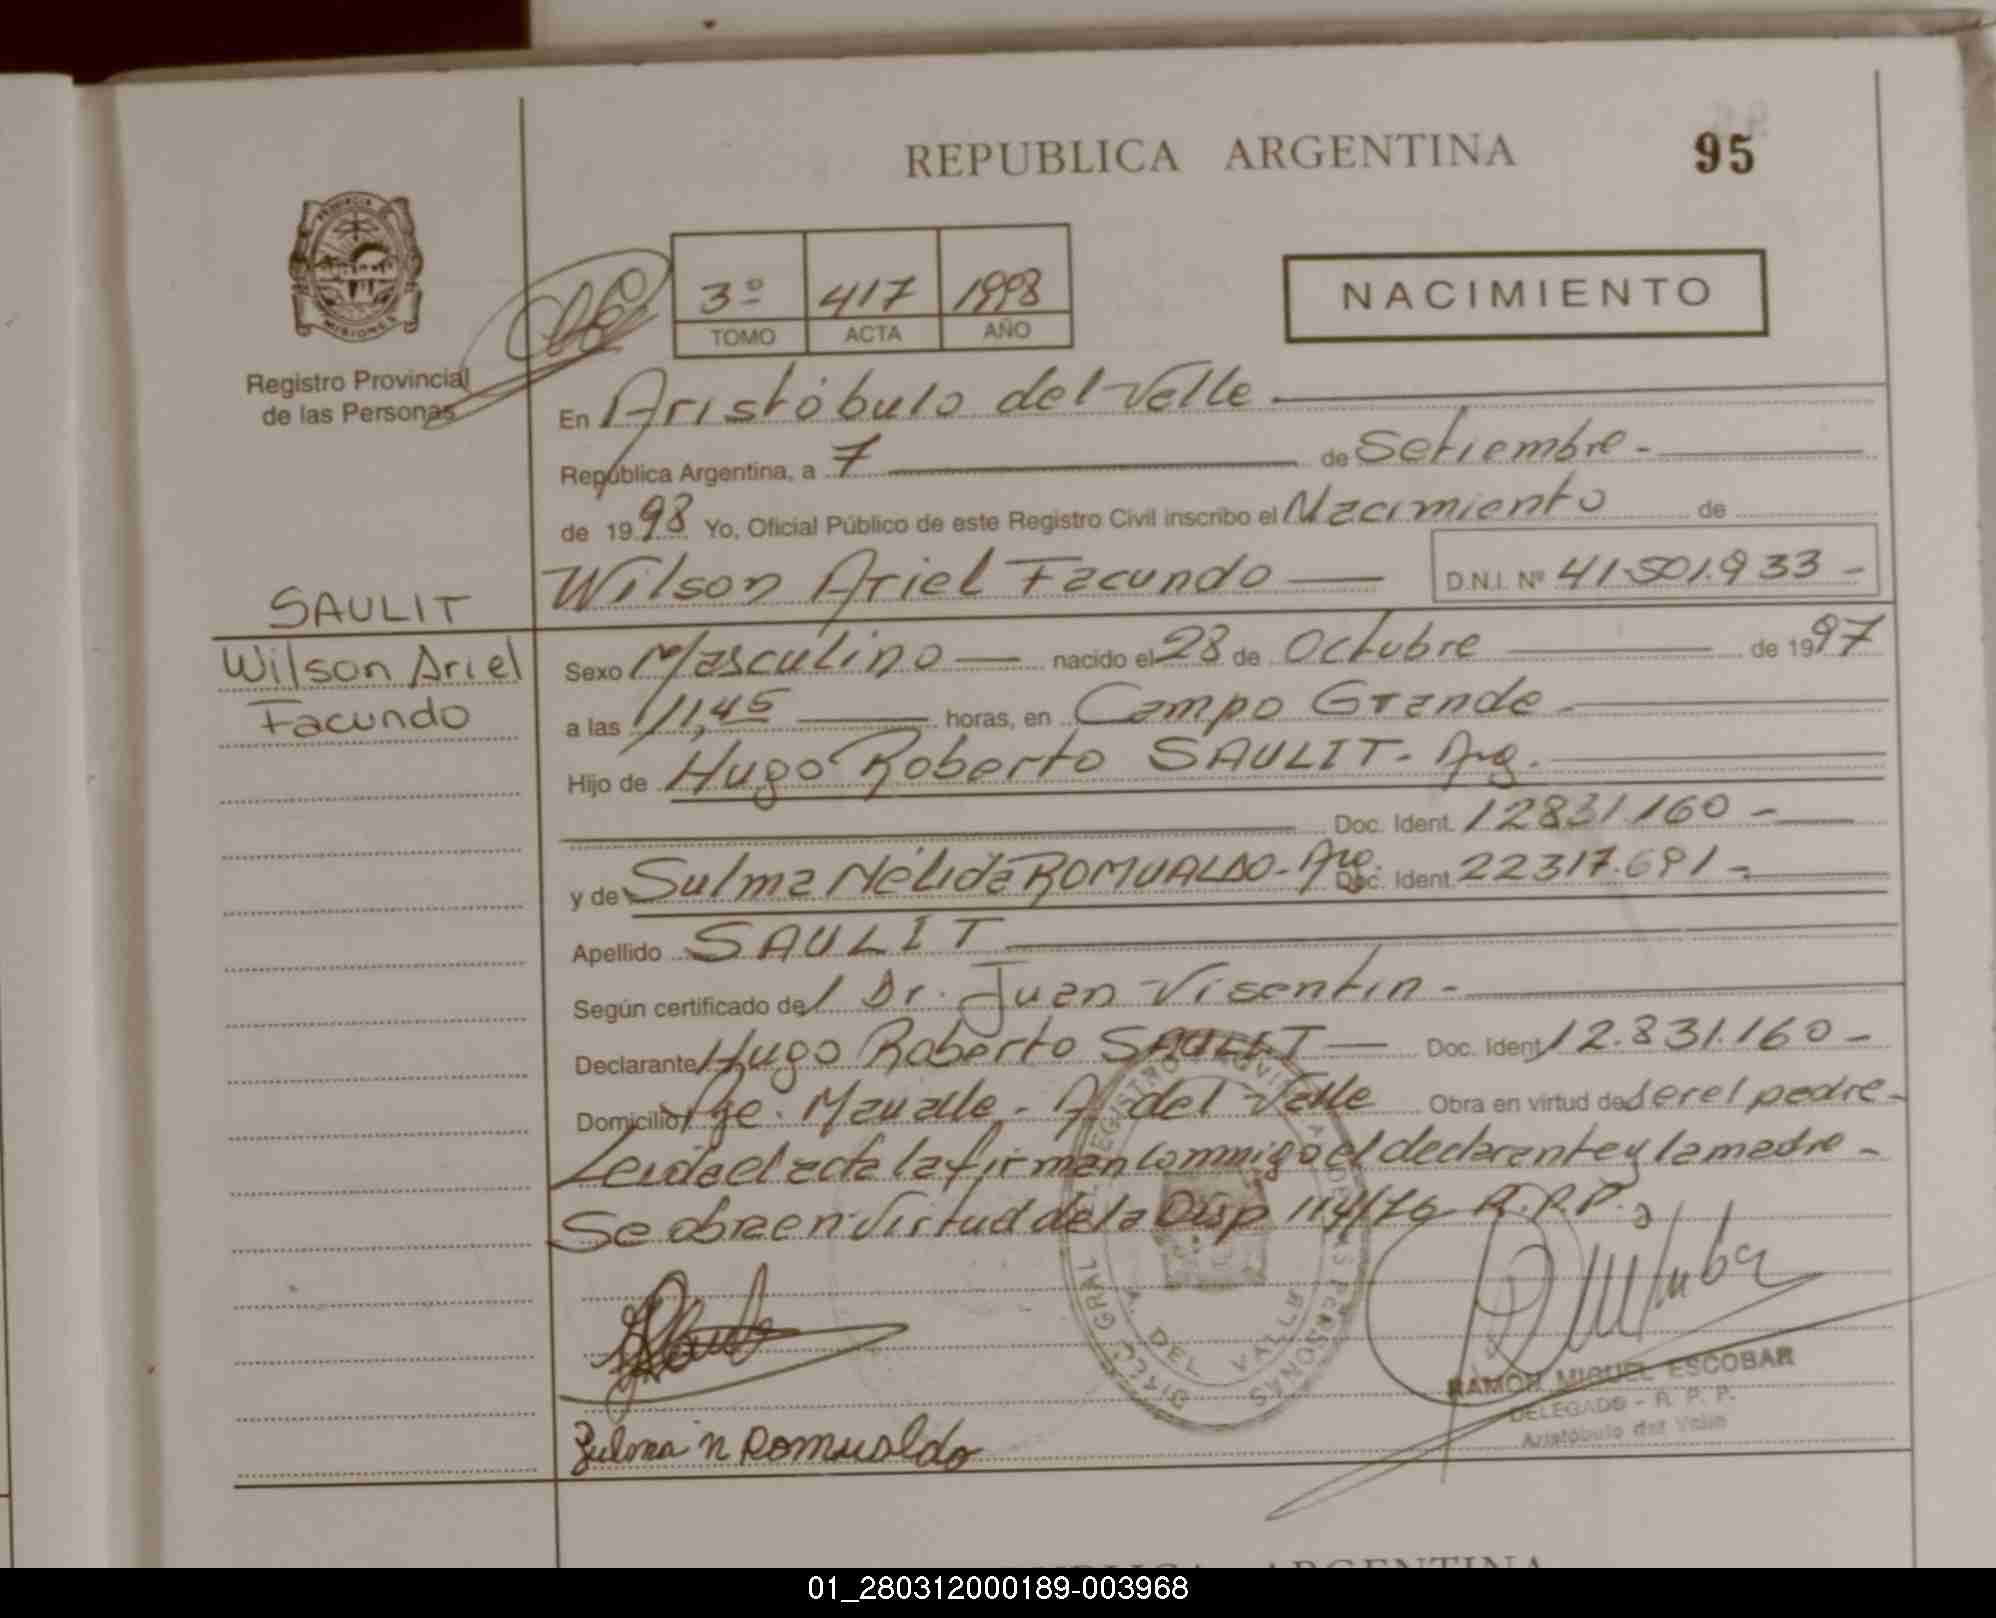 REPUBLICA ARGENTINA
95
PROVINCIA DE
MISIONES
Registro Provincial
de las Personas
3º 417 1998
TOMO ACTA AÑO
NACIMIENTO
En Aristóbulo del Valle
República Argentina, a 7 de Setiembre -
de 1998 Yo, Oficial Público de este Registro Civil inscribo el Nacimiento de
Wilson Ariel Facundo D.N.I. Nº 41.501.933 -
SAULIT
Wilson Ariel
Facundo
Sexo Masculino nacido el 28 de Octubre de 1997
a las 11,45 horas, en Campo Grande
Hijo de Hugo Roberto SAULIT - Arg.
Doc. Ident. 12831.160 -
y de Sulma Nélida ROMUALDO - Arg. Doc. Ident. 22317.691 -
Apellido SAULIT
Según certificado de Dr. Juan Visentin -
Declarante Hugo Roberto SAULIT Doc. Ident. 12.831.160 -
Domicilio Pje. - A. del Valle Obra en virtud de ser el padre -
Leida el acta la firman conmigo el declarante y la madre -
Se obra en virtud de la Disp. 114/76 R.P.P.
Zulma N Romualdo
RAMON MIGUEL ESCOBAR
DELEGADO - R. P. P.
Aristóbulo del Valle
REPUBLICA ARGENTINA
01_280312000189-003968